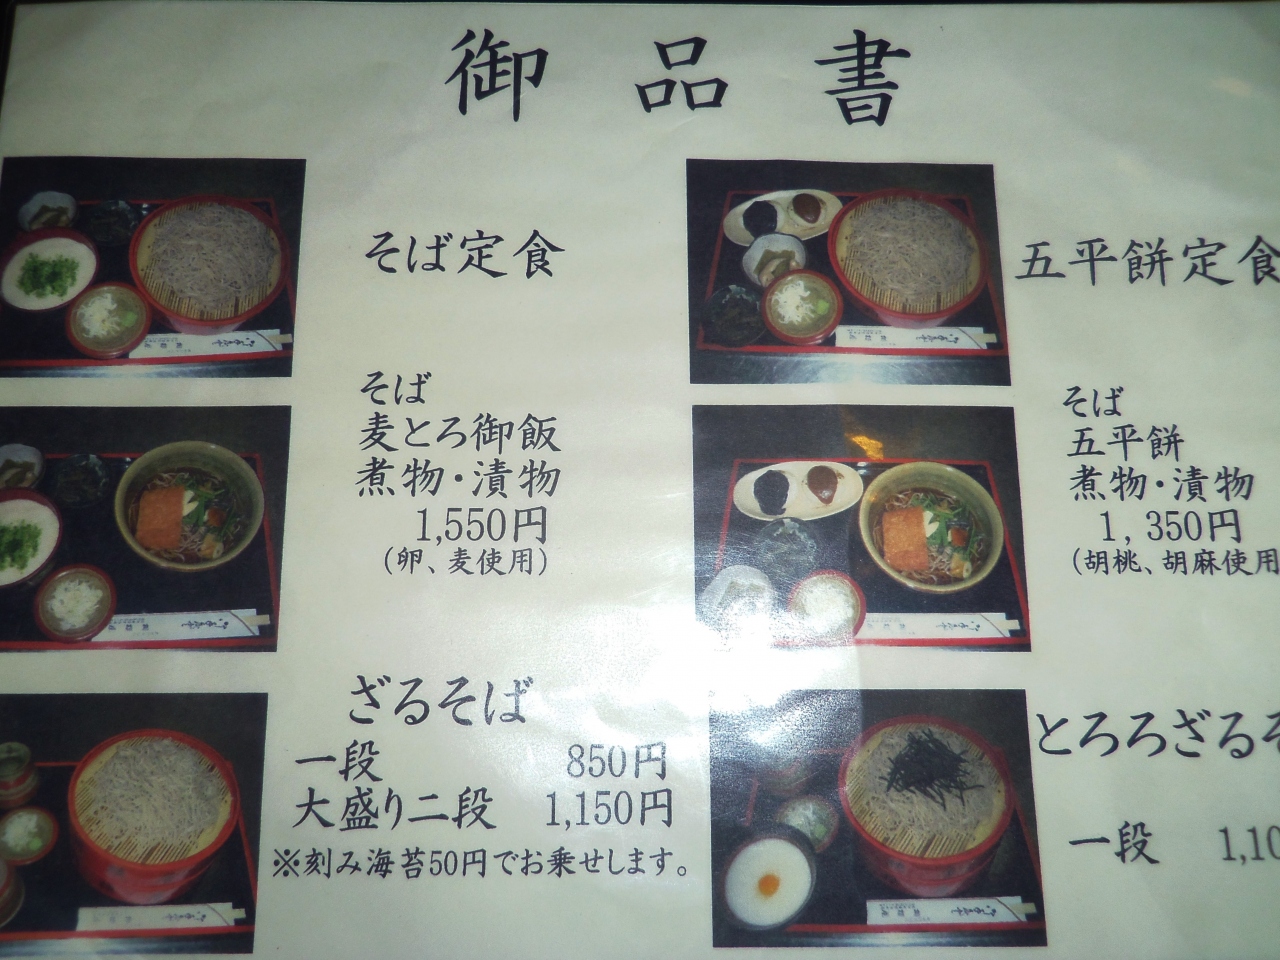 御品書
そば定食
そば
麦とろ御飯
煮物・漬物
1,550円
(卵、麦使用)
五平餅定食
そば
五平餅
煮物・漬物
1,350円
(胡桃、胡麻使用
ざるそば
一段 850円
大盛り二段 1,150円
※刻み海苔50円でお乗せします。
とろろざるそ
一段 1,10